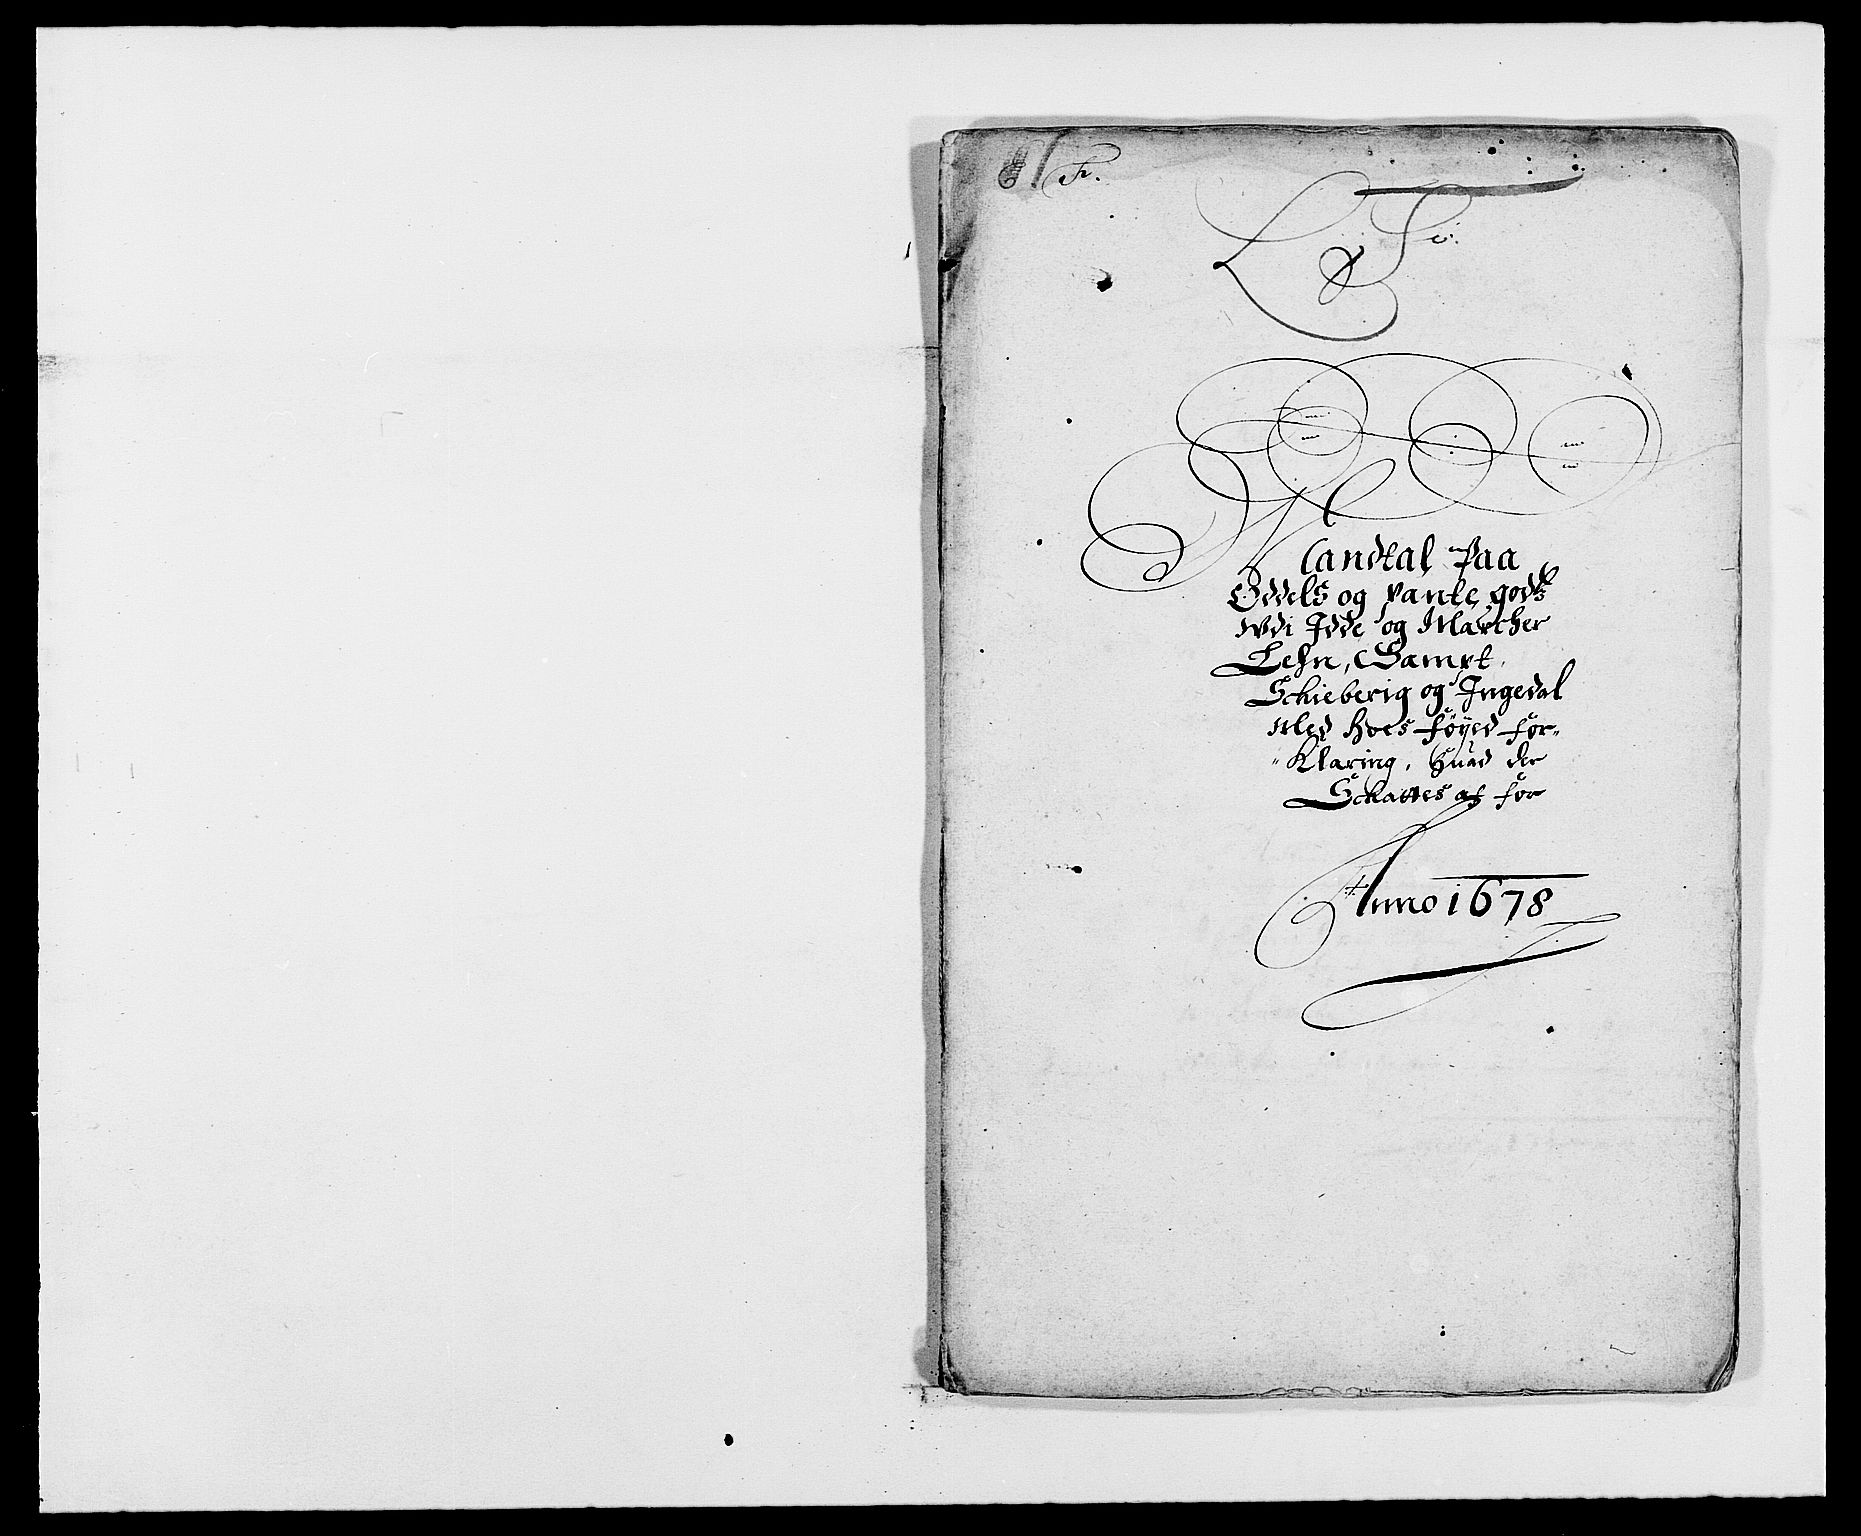 Mandtal Paa
Oddels og pante godtz
wdi Idde og Marcher
Lehn, Sampt
Schieberig og Ingedal
Med hoes föyed for-
-Klaring, Huad der
Schattes af for
Anno 1678